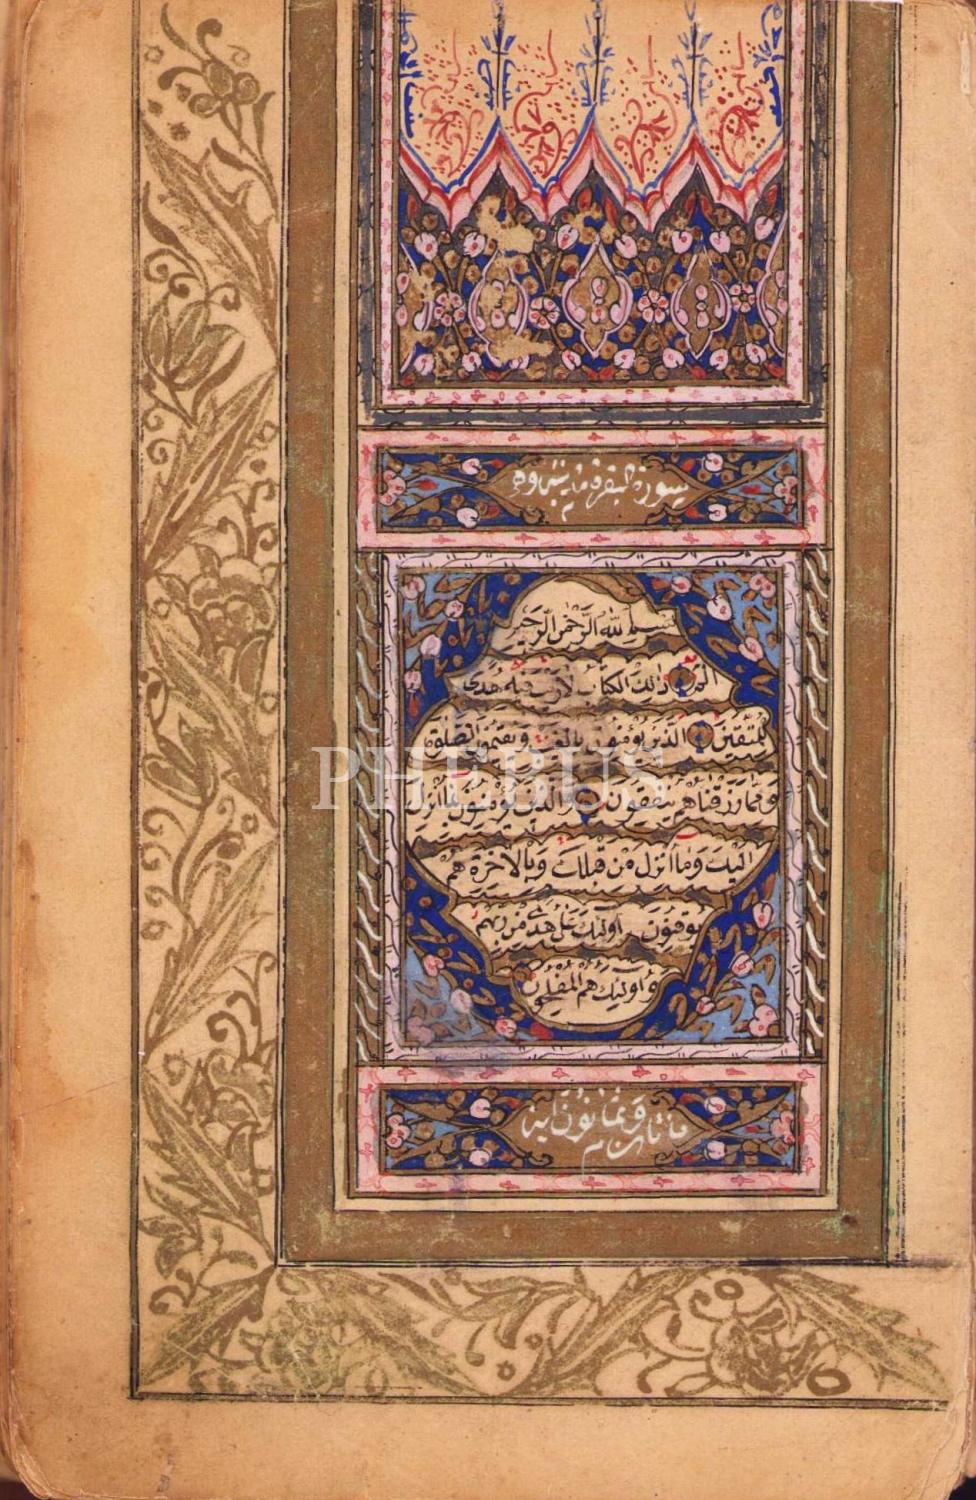 سورة البقرة مدينة وهي
بسم الله الرحمن الرحيم
الم ذلك الكتاب لا ريب فيه هدى
للمتقين الذين يؤمنون بالغيب ويقيمون الصلوة
ومما رزقناهم ينفقون والذين يؤمنون بما انزل
اليك وما انزل من قبلك وبالاخرة هم
يوقنون اولئك على هدى من ربهم
واولئك هم المفلحون
PHEBUS